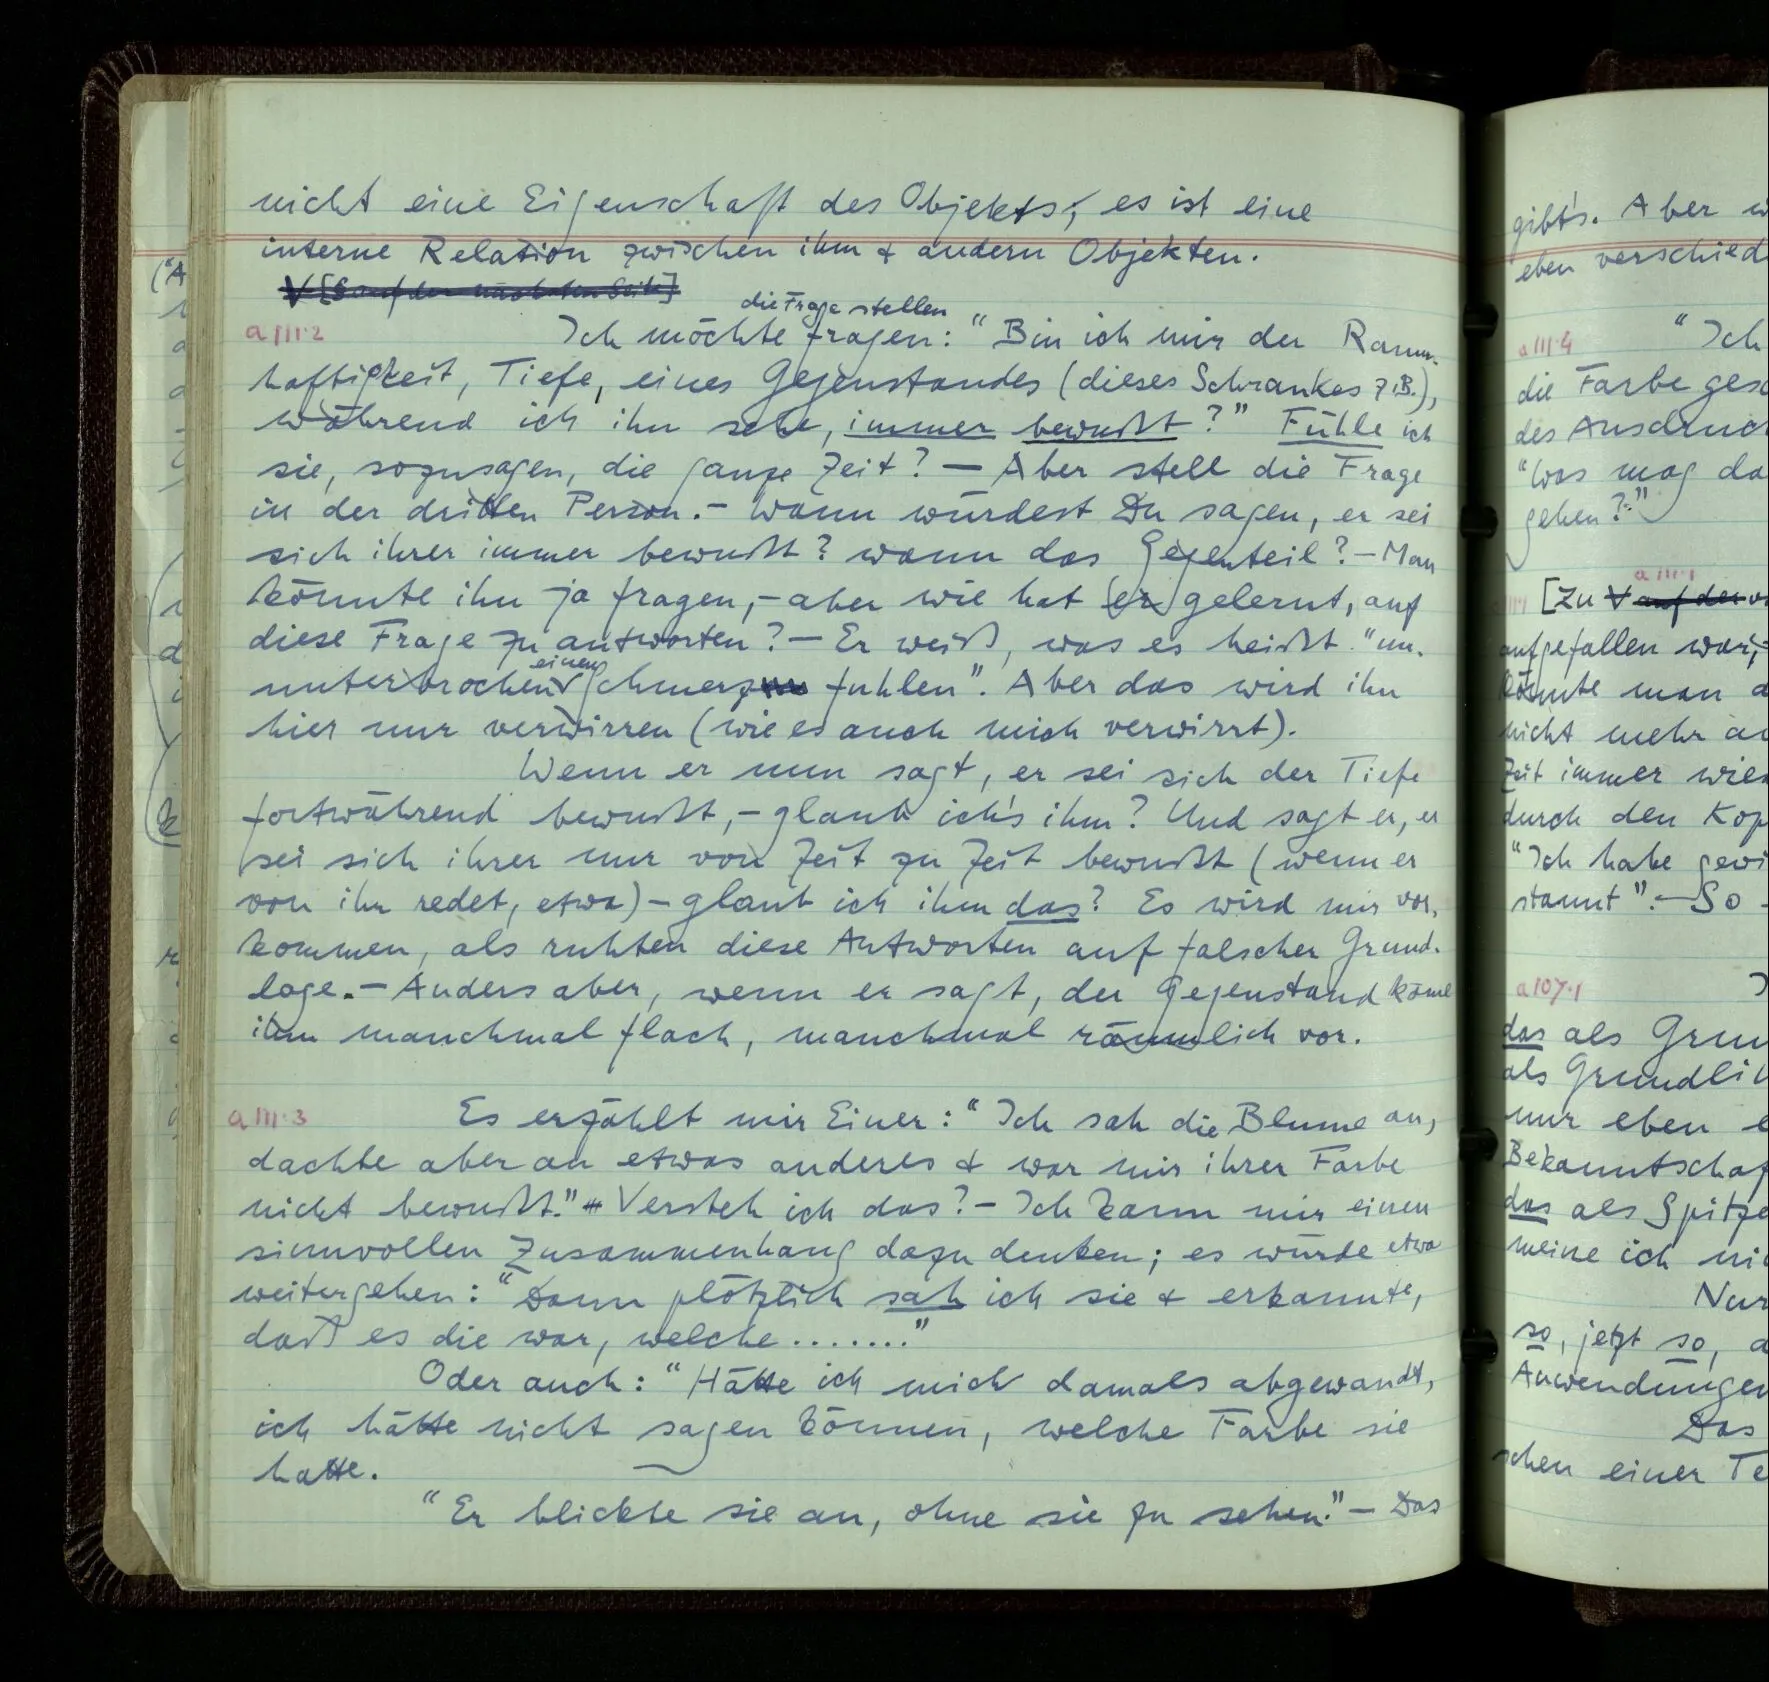 nicht eine Eigenschaft des Objekts; es ist eine
interne Relation zwischen ihm & andern Objekten.
V [S auf der nächsten Seite]
die Frage stellen
a III·2 Ich möchte fragen: “Bin ich mir der Raum-
haftigkeit, Tiefe, eines Gegenstandes (dieses Schrankes z.B.),
während ich ihn sehe, immer bewußt?” Fühle ich
sie, sozusagen, die ganze Zeit? — Aber stell die Frage
in der dritten Person. – Wann würdest Du sagen, er sei
sich ihrer immer bewußt? wann das Gegenteil? – Man
könnte ihn ja fragen, – aber wie hat er gelernt, auf
diese Frage zu antworten? – Er weiß, was es heißt “un-
einen
unterbrochen Schmerz fühlen”. Aber das wird ihn
hier nur verwirren (wie es auch mich verwirrt).
Wenn er nun sagt, er sei sich der Tiefe
fortwährend bewußt, – glaub ich's ihm? Und sagt er, er
sei sich ihrer nur von Zeit zu Zeit bewußt (wenn er
von ihr redet, etwa) – glaub ich ihm das? Es wird mir vor-
kommen, als ruhten diese Antworten auf falscher Grund-
lage. – Anders aber, wenn er sagt, der Gegenstand käme
ihm manchmal flach, manchmal räumlich vor.
a III·3 Es erzählt mir Einer: “Ich sah die Blume an,
dachte aber an etwas anderes & war mir ihrer Farbe
nicht bewußt.” Versteh ich das? – Ich kann mir einen
sinnvollen Zusammenhang dazu denken; es würde etwa
weitergehen: “Dann plötzlich sah ich sie & erkannte,
daß es die war, welche .......”
Oder auch: “Hätte ich mich damals abgewandt,
ich hätte nicht sagen können, welche Farbe sie
hatte.
“Er blickte sie an, ohne sie zu sehen.” – Das
gibt's. Aber
eben verschied
a III·4 “Ich
die Farbe gese
des Ausdruck
“Was mag da
gehen?”
a III·1
[Zu V auf der
aufgefallen war;
könnte man
nicht mehr
Zeit immer wied
durch den Kop
“Ich habe gewi
staunt”. – So
a 107·1
das als Grun
als Grundli
nur eben e
Bekanntschaf
das als Spitze
meine ich ni
Nur
so, jetzt so, a
Anwendungen
Das
schen einer Te